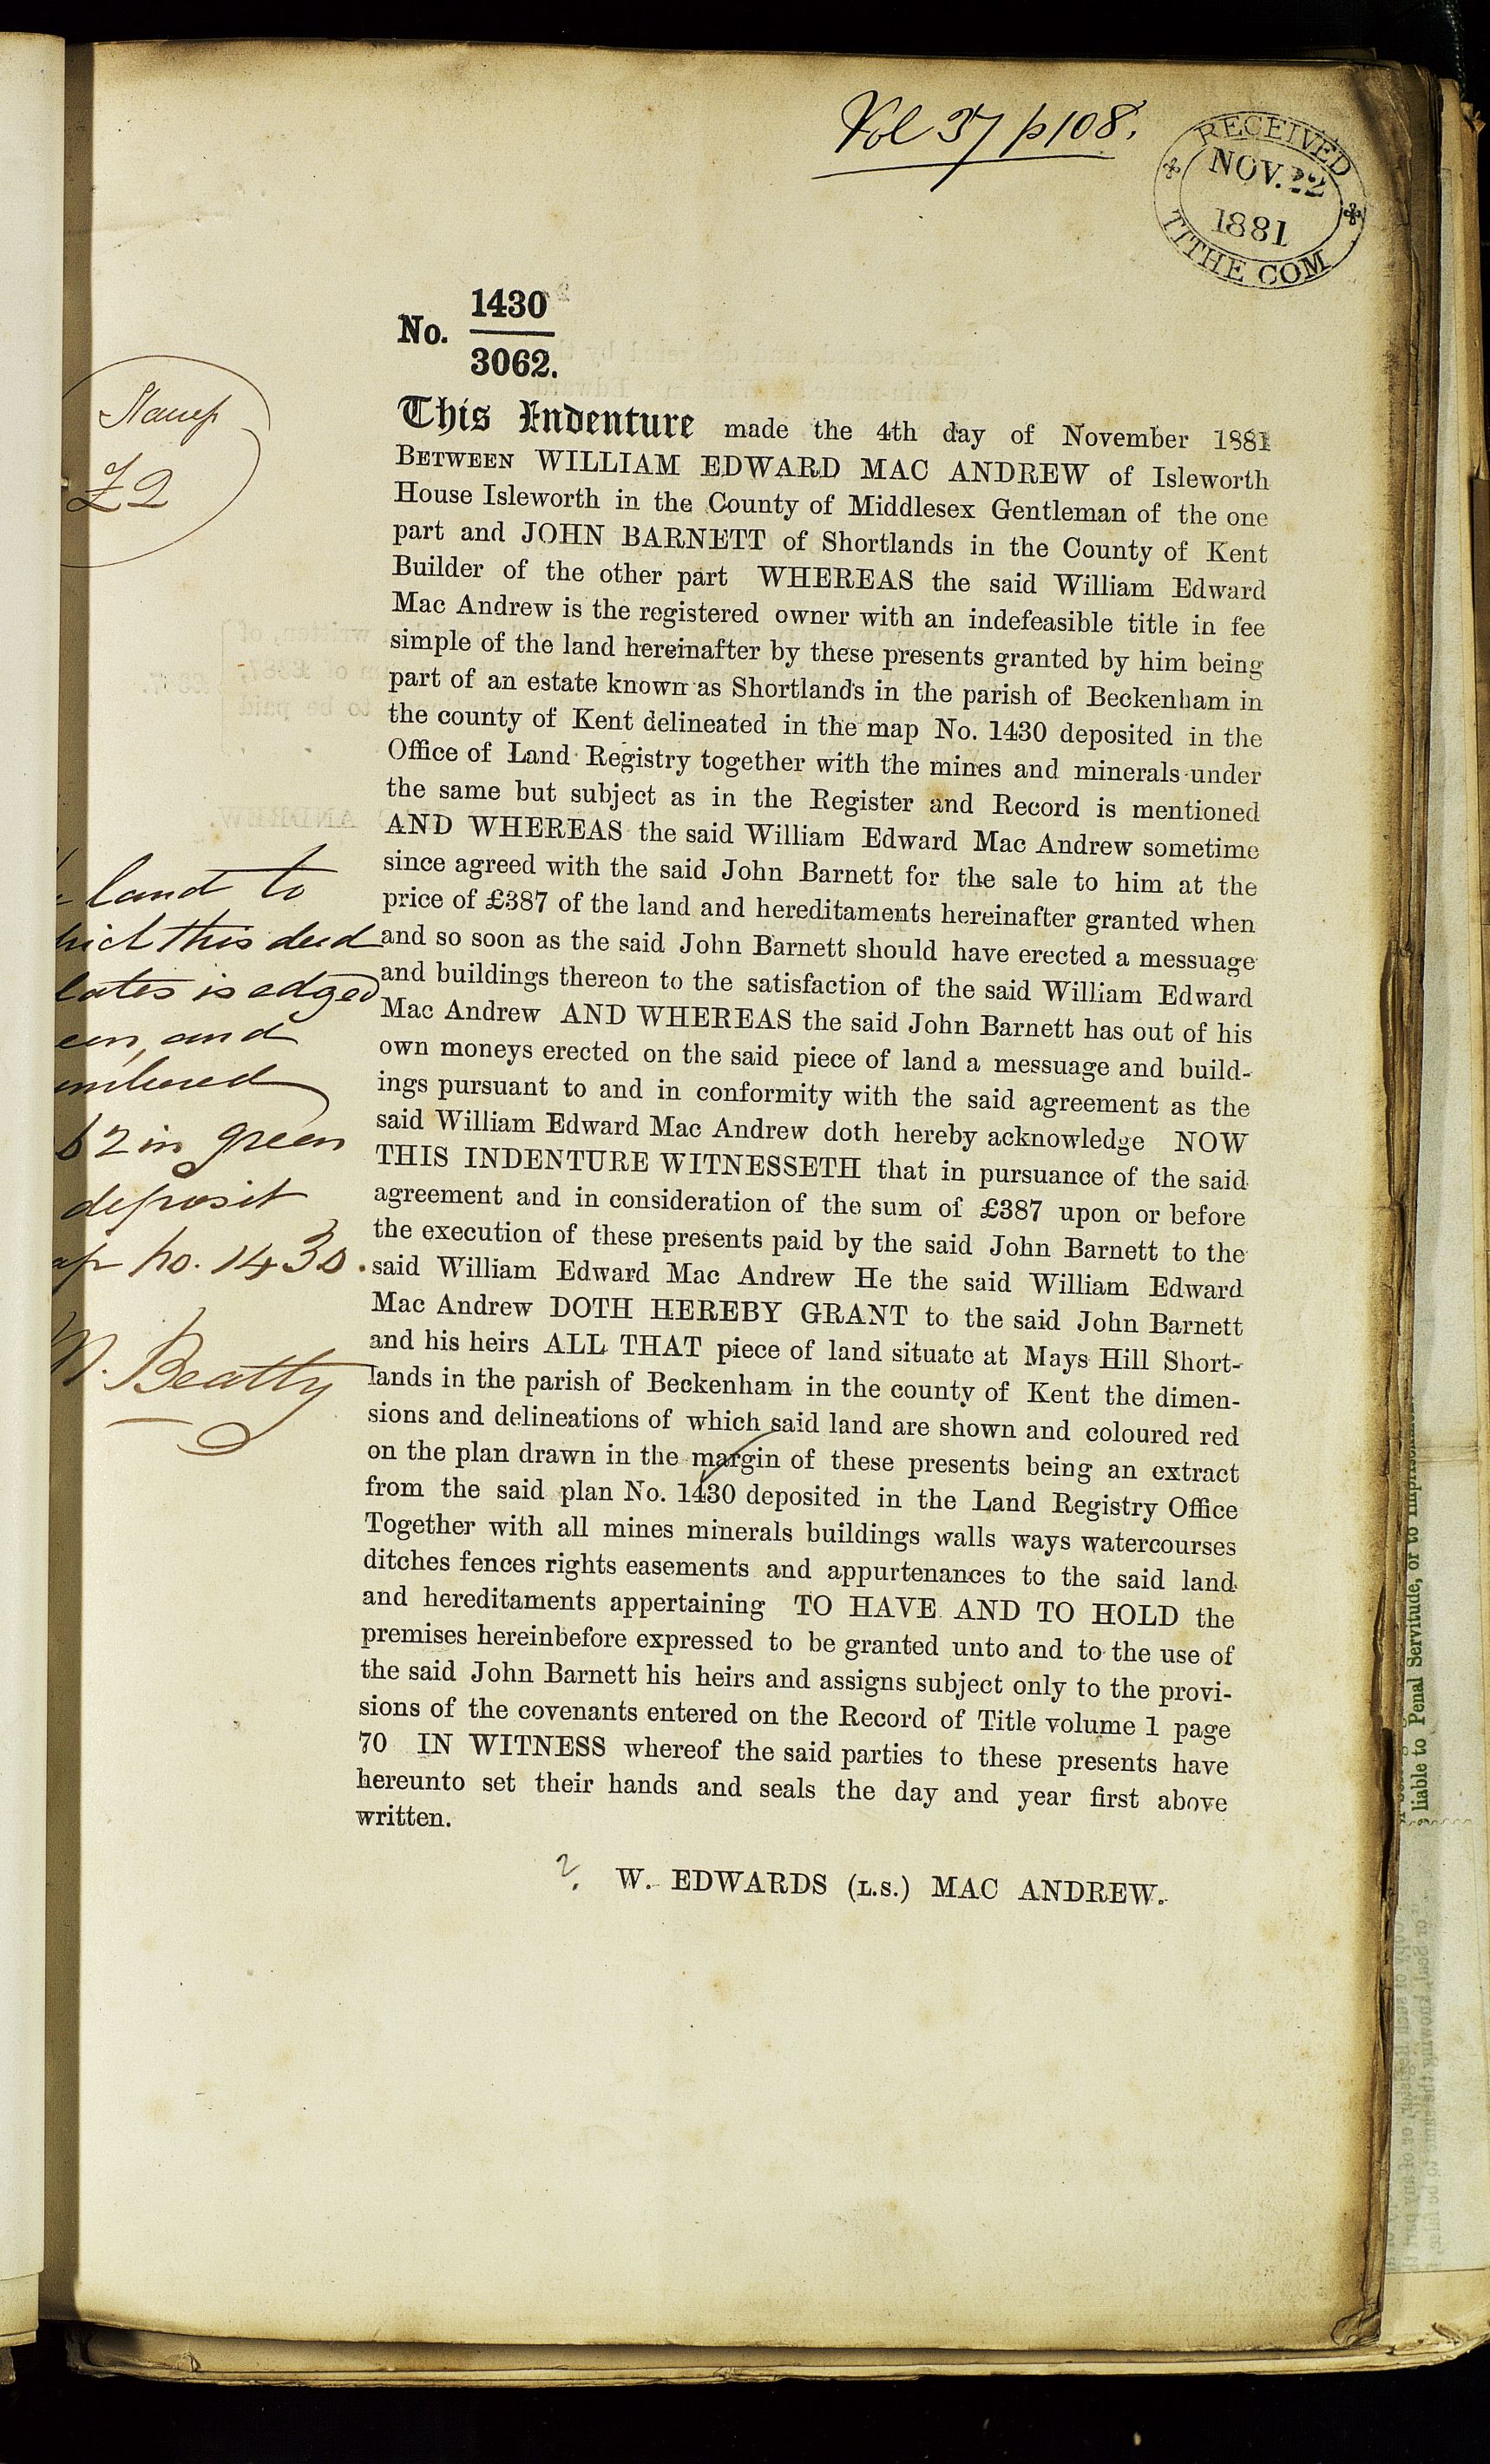 Vol 37 p 108.
RECEIVED
NOV. 22
1881
TITHE COM
No. 1430
3062.
Stamp
£2
This Indenture made the 4th day of November 1881
BETWEEN WILLIAM EDWARD MAC ANDREW of Isleworth
House Isleworth in the County of Middlesex Gentleman of the one
part and JOHN BARNETT of Shortlands in the County of Kent
Builder of the other part WHEREAS the said William Edward
Mac Andrew is the registered owner with an indefeasible title in fee
simple of the land hereinafter by these presents granted by him being
part of an estate known as Shortlands in the parish of Beckenham in
the county of Kent delineated in the map No. 1430 deposited in the
Office of Land Registry together with the mines and minerals under
the same but subject as in the Register and Record is mentioned
AND WHEREAS the said William Edward Mac Andrew sometime
since agreed with the said John Barnett for the sale to him at the
price of £387 of the land and hereditaments hereinafter granted when
and so soon as the said John Barnett should have erected a messuage
and buildings thereon to the satisfaction of the said William Edward
Mac Andrew AND WHEREAS the said John Barnett has out of his
own moneys erected on the said piece of land a messuage and build-
ings pursuant to and in conformity with the said agreement as the
said William Edward Mac Andrew doth hereby acknowledge NOW
THIS INDENTURE WITNESSETH that in pursuance of the said
agreement and in consideration of the sum of £387 upon or before
the execution of these presents paid by the said John Barnett to the
said William Edward Mac Andrew He the said William Edward
Mac Andrew DOTH HEREBY GRANT to the said John Barnett
and his heirs ALL THAT piece of land situate at Mays Hill Short-
lands in the parish of Beckenham in the county of Kent the dimen-
sions and delineations of which said land are shown and coloured red
on the plan drawn in the margin of these presents being an extract
from the said plan No. 1430 deposited in the Land Registry Office
Together with all mines minerals buildings walls ways watercourses
ditches fences rights easements and appurtenances to the said land
and hereditaments appertaining TO HAVE AND TO HOLD the
premises hereinbefore expressed to be granted unto and to the use of
the said John Barnett his heirs and assigns subject only to the provi-
sions of the covenants entered on the Record of Title volume 1 page
70 IN WITNESS whereof the said parties to these presents have
hereunto set their hands and seals the day and year first above
written.
? W. EDWARDS (L.S.) MAC ANDREW.
land to
hich this deed
lates is edged
een, and
umbered
62 in green
deposit
ap no. 1430.
Beatty
liable to Penal Servitude, or to Imprisonment